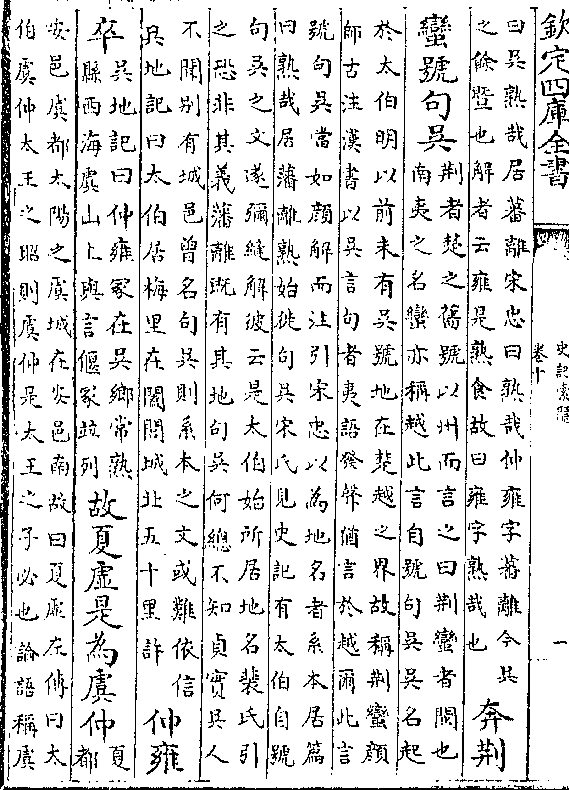 欽定四庫全書
史記索隱
卷十
一
曰吳熟哉居蕃離宋忠曰熟哉仲雍字蕃離今吳
之餘暨也解者云雍是熟食故曰雍字熟哉也
奔荆
蠻號句吳
荆者楚之舊號以州而言之曰荆蠻者閩也
南夷之名蠻亦稱越此言自號句吳吳名起
於太伯明以前未有吳號地在楚越之界故稱荆蠻顔
師古注漢書以吳言句者夷語發聲猶言於越爾此言
號句吳當如顔解而注引宋忠以為地名者系本居篇
曰熟哉居藩離熟始徙句吳宋氏見史記有太伯自號
句吳之文遂彌縫解彼云是太伯始所居地名裴氏引
之恐非其義藩離既有其地句吳何總不知貞實吳人
不聞别有城邑曾名句吳則系本之文或難依信
吳地記曰太伯居梅里在闔閭城北五十里許
仲雍
卒
吳地記曰仲雍冢在吳鄉常熟
縣西海虞山上與言偃冢竝列
故夏虛是為虞仲
夏
都
安邑虞都太陽之虞城在安邑南故曰夏虛左傳曰太
伯虞仲太王之昭則虞仲是太王之子必也論語稱虞